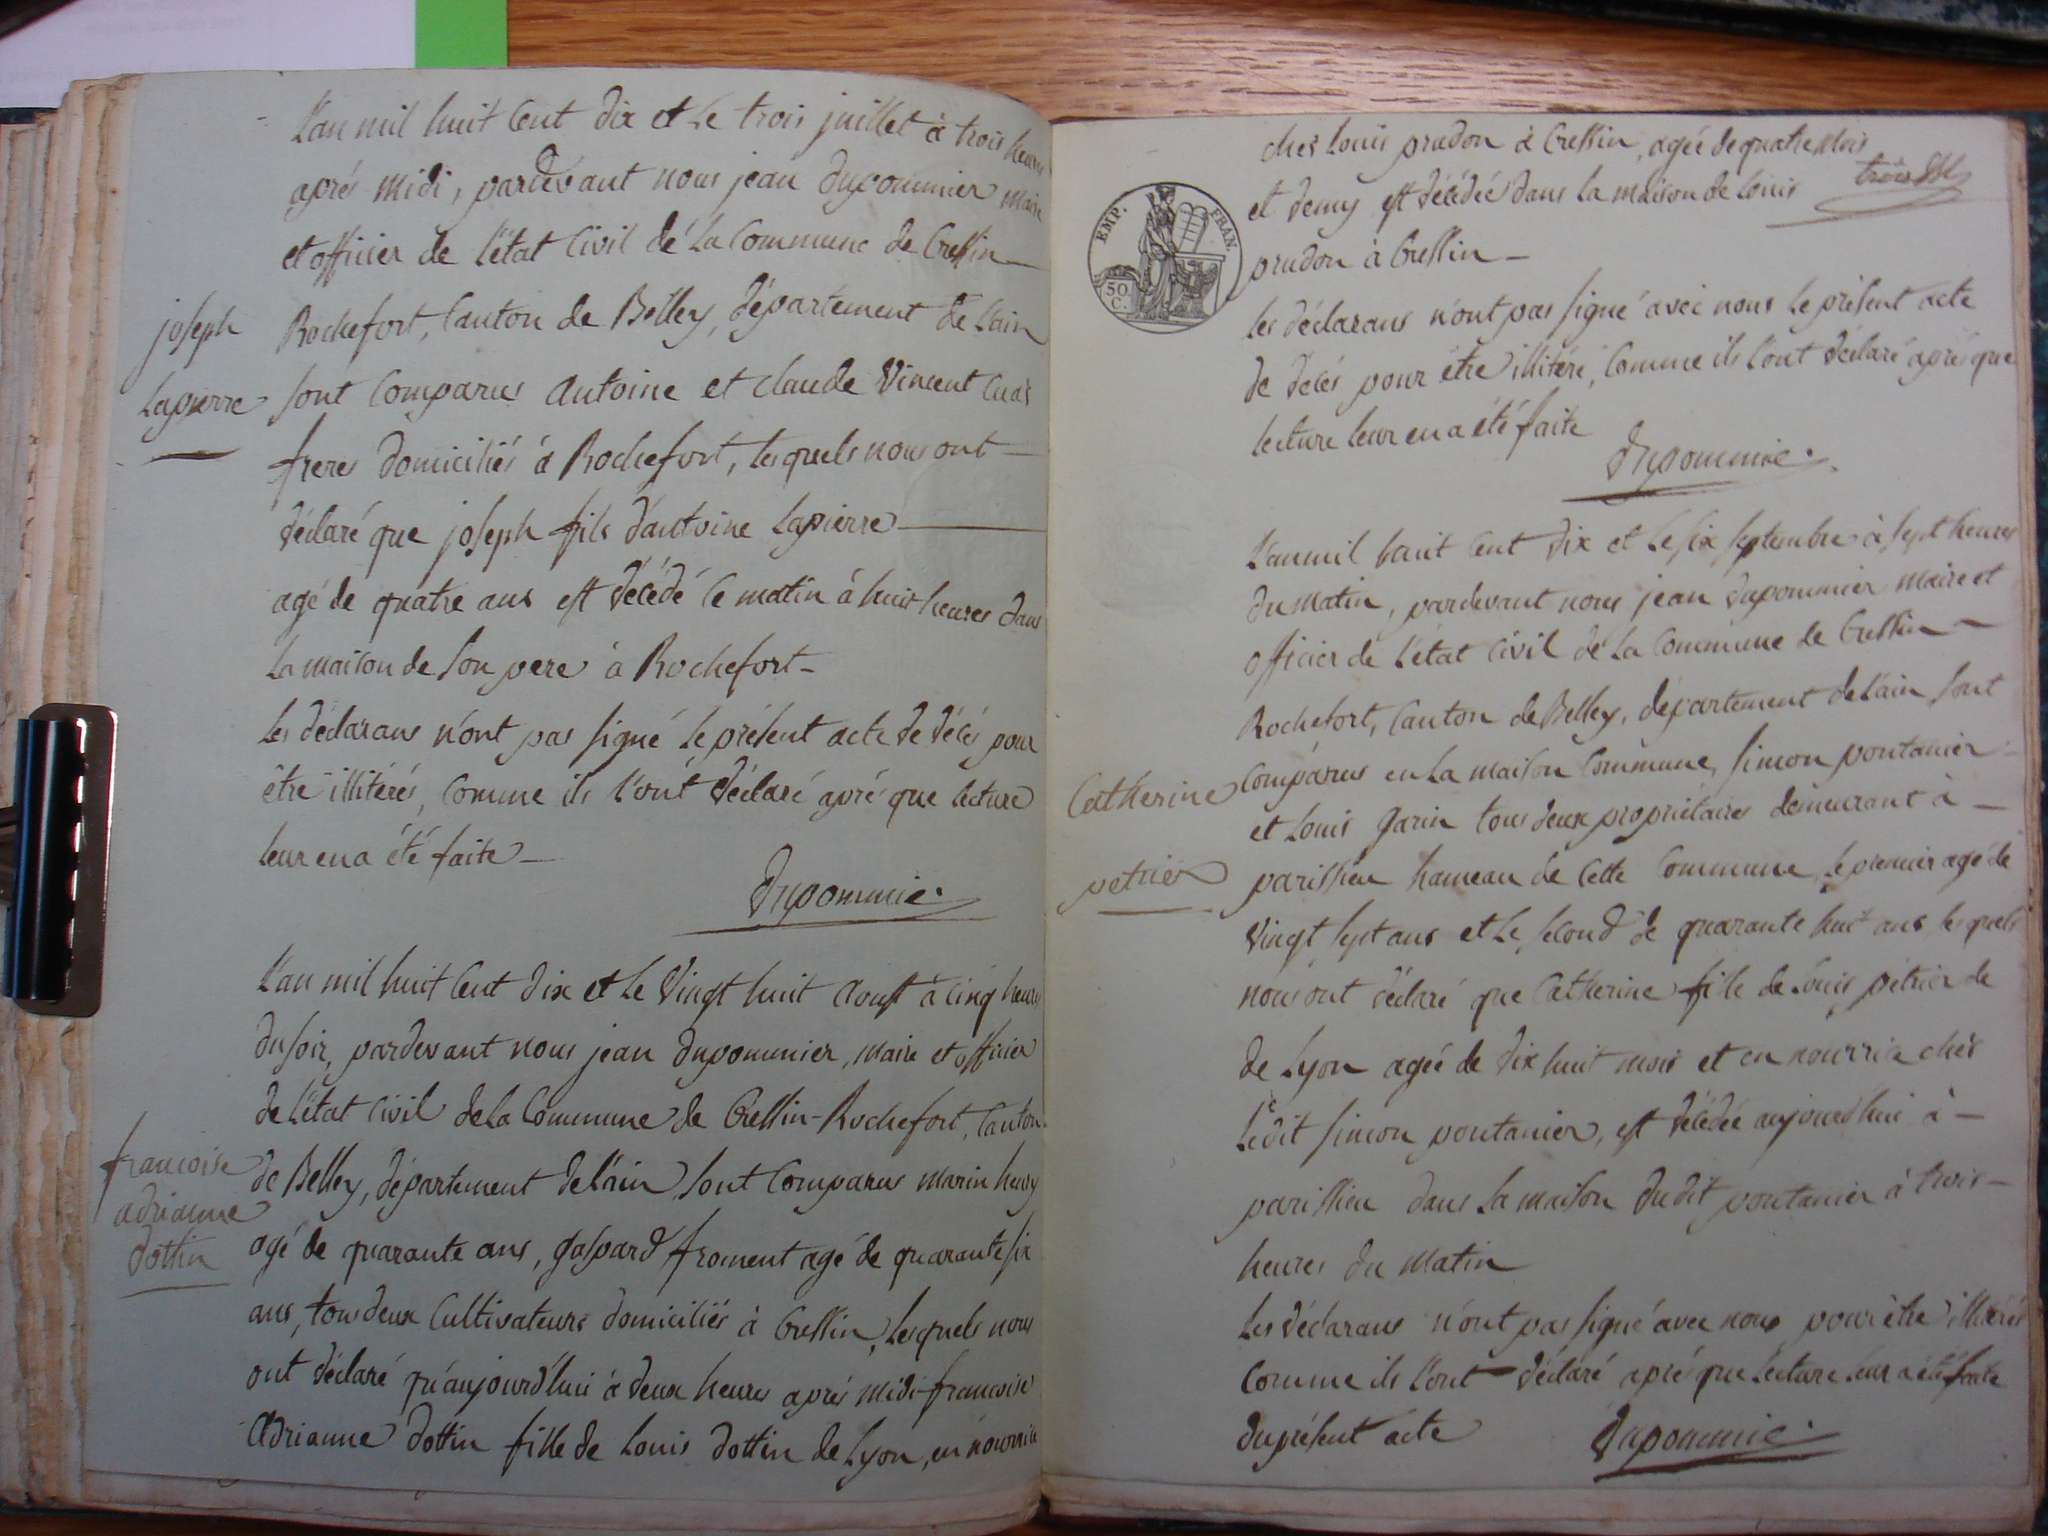 L'an mil huit Cent dix et Le trois juillet à trois heures
aprés midi, pardevant nous jean dupommier maire
et officier de l'état Civil de La Commune de Cressin
Rochefort, Canton de Belley, département de L'ain
joseph
Lapierre
sont Comparus antoine et claude Vincent
freres domiciliés à Rochefort, lesquels nous ont
déclaré que joseph fils d'antoine Lapierre
agé de quatre ans est décédé ce matin à huit heures dans
La maison de son pere à Rochefort
Les déclarans n'ont pas signé Le présent acte de décés pour
être illitérés, Comme ils l'ont déclaré aprés que Lecture
leur en a été faite
Dupommie.
L'an mil huit Cent dix et Le Vingt huit Aoust à cinq heures
du soir, pardevant nous jean dupommier, maire et officier
de l'état Civil de la Commune de Cressin-Rochefort, Canton
francoise
adrianne
dottin
de Belley, département de L'ain, sont Comparus marin henry
agé de quarante ans, gaspard froment agé de quarante six
ans, tous deux Cultivateurs domiciliés à Cressin, Lesquels nous
ont déclaré qu'aujourd'hui à deux heures aprés midi francoise
Adrianne dottin fille de Louis dottin de Lyon, en nourrice
chés Louis prudon à Cressin, agée de quatre Mois
et demy est décédée dans La maison de Louis
prudon à Cressin
EMP. FRAN.
50 C.
les déclarans n'ont pas signé avec nous Le présent acte
de décés pour être illitéré, Comme ils l'ont déclaré aprés que
lecture leur en a été faite
Dupommie.
L'an mil huit Cent dix et Le six septembre à sept heures
du matin, pardevant nous jean dupommier maire et
officier de l'état Civil de La Commune de Cressin
Rochefort, Canton de Belley, département de L'ain, sont
Catherine
petrier
Comparus en La maison Commune, simon pontanier
et Louis garin tous deux propriétaires demeurant à
parissieu hameau de Cette Commune, Le premier agé de
Vingt sept ans et Le second de quarante huit ans, lesquels
nous ont déclaré que Catherine fille de Louis pétrier de
de Lyon agée de dix huit mois et en nourrice chés
Ledit simon pontanier, est décédée aujourd'hui à
parissieu dans La maison dudit pontanier à trois
heures du matin
Les déclarans n'ont pas signé avec nous pour être illitérés
Comme ils l'ont déclaré aprés que Lecture leur a été faite
du présent acte
Dupommie.